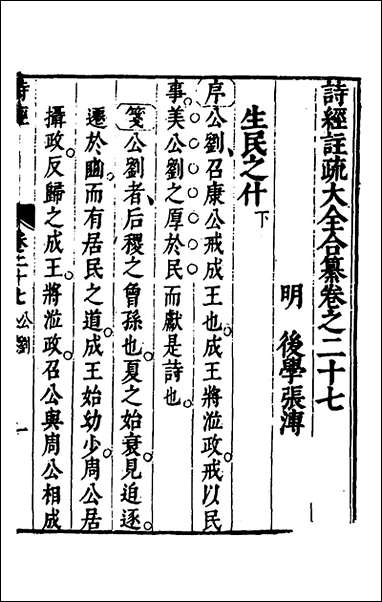 詩經註疏大全合纂卷之二十七
明　後學張溥
生民之什下
序公劉召康公戒成王也成王將涖政戒以民
事美公劉之厚於民而獻是詩也
箋公劉者后稷之曾孫也夏之始衰見迫逐
遷於豳而有居民之道成王始幼少周公居
攝政反歸之成王將涖政召公與周公相成
詩經　卷二十七　公劉　一